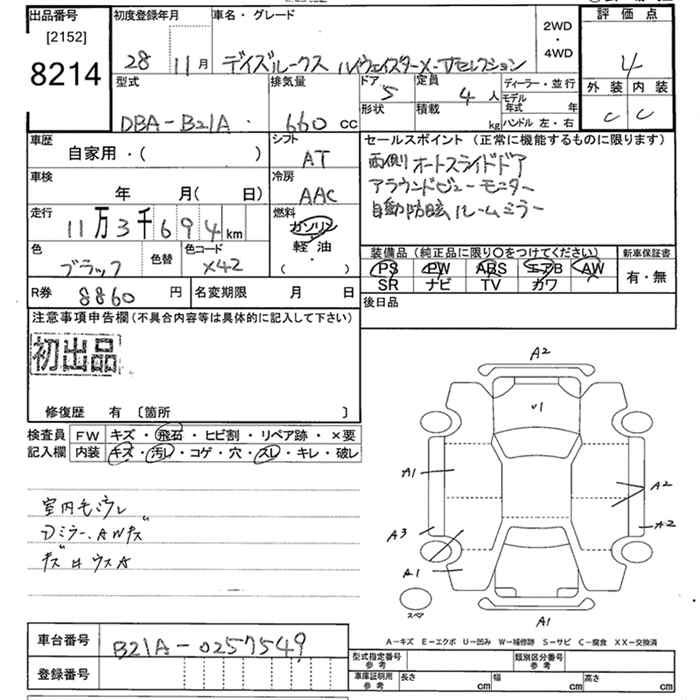 出品番号
[2152]
8214
初度登録年月
28 11月
車名・グレード
デイズルークス ハイウェイスターX-Vセレクション
2WD
・
4WD
評価点
4
外装 内装
C C
型式
DBA-B21A
排気量
660 cc
ドア
5
定員
4 人
形状
積載
kg
ディーラー・並行
モデル年式 年
ハンドル 左・右
車歴
自家用・( )
シフト
AT
車検
年 月( 日)
冷房
AAC
走行
11万3千694 km
燃料
ガソリン
軽油
( )
色
ブラック
色替
色コード
X42
R券 8860 円
名変期限 月 日
セールスポイント(正常に機能するものに限ります)
両側オートスライドドア
アラウンドビューモニター
自動防眩ルームミラー
装備品(純正品に限り○をつけてください)
PS PW ABS エアB AW
SR ナビ TV カワ
新車保証書
有・無
後日品
注意事項申告欄(不具合内容等は具体的に記入して下さい)
初出品
修復歴 有 〔箇所 〕
検査員記入欄
FW キズ・飛石・ヒビ割・リペア跡・×要
内装 キズ・汚レ・コゲ・穴・スレ・キレ・破レ
室内モウレ
Dミラー、AWキズ
A2
V1
A1
A2
A3
A2
A1
スペア
A1
A-キズ E-エクボ U-凹み W-補修跡 S-サビ C-腐食 XX-交換済
車台番号 B21A-0257549
登録番号
型式指定番号 参考
類別区分番号 参考
車庫証明用 参考
長さ cm 幅 cm 高さ cm